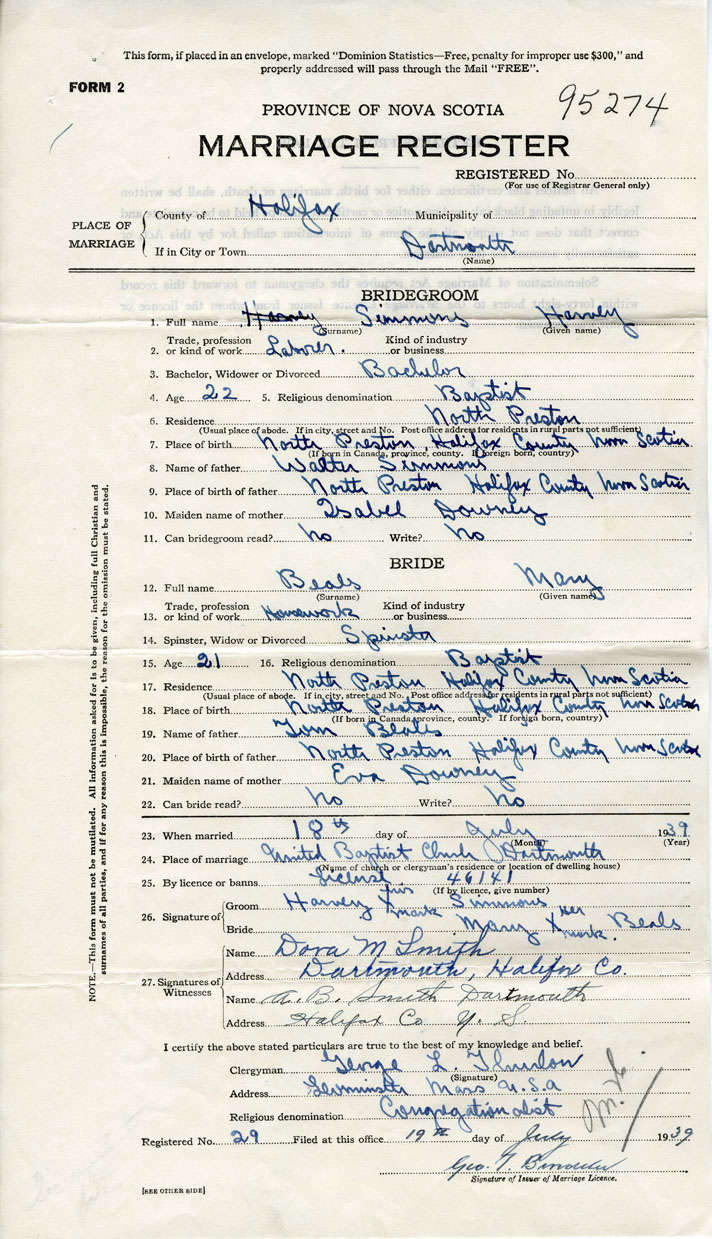 This form, if placed in an envelope, marked "Dominion Statistics—Free, penalty for improper use $300," and
properly addressed will pass through the Mail "FREE".
FORM 2
95274
PROVINCE OF NOVA SCOTIA
MARRIAGE REGISTER
REGISTERED No.
(For use of Registrar General only)
PLACE OF MARRIAGE
County of Halifax Municipality of
If in City or Town Dartmouth
(Name)
BRIDEGROOM
1. Full name Harvey Simmons Harvey
(Surname) (Given name)
2. Trade, profession or kind of work Laborer. Kind of industry or business
3. Bachelor, Widower or Divorced Bachelor
4. Age 22 5. Religious denomination Baptist
6. Residence North Preston
(Usual place of abode. If in city, street and No. Post office address for residents in rural parts not sufficient)
7. Place of birth North Preston, Halifax County Nova Scotia
(If born in Canada, province, county. If foreign born, country)
8. Name of father Walter Simmons
9. Place of birth of father North Preston Halifax County Nova Scotia
10. Maiden name of mother Isabel Downey
11. Can bridegroom read? No Write? No
BRIDE
12. Full name Beals Mary
(Surname) (Given name)
13. Trade, profession or kind of work Housework Kind of industry or business
14. Spinster, Widow or Divorced Spinster
15. Age 21 16. Religious denomination Baptist
17. Residence North Preston Halifax County Nova Scotia
(Usual place of abode. If in city, street and No. Post office address for residents in rural parts not sufficient)
18. Place of birth North Preston Halifax County Nova Scotia
(If born in Canada, province, county. If foreign born, country)
19. Name of father Tom Beals
20. Place of birth of father North Preston Halifax County Nova Scotia
21. Maiden name of mother Eva Downey
22. Can bride read? No Write? No
23. When married 18th day of July 1939
(Month) (Year)
24. Place of marriage United Baptist Church Dartmouth
(Name of church or clergyman's residence or location of dwelling house)
25. By licence or banns 46141
(If by licence, give number)
26. Signature of
Groom Harvey his X mark Simmons
Bride Mary her X mark. Beals
27. Signatures of Witnesses
Name Dora M Smith
Address Dartmouth, Halifax Co.
Name A. B. Smith Dartmouth
Address Halifax Co N. S.
I certify the above stated particulars are true to the best of my knowledge and belief.
Clergyman George L.
(Signature)
Address Mass U.S.A
Religious denomination Congregationalist
Registered No. 29 Filed at this office 19th day of July 1939
Geo. T.
Signature of Issuer of Marriage Licence.
[SEE OTHER SIDE]
NOTE.—This form must not be mutilated. All Information asked for is to be given, including full Christian and
surnames of all parties, and if for any reason this is impossible, the reason for the omission must be stated.